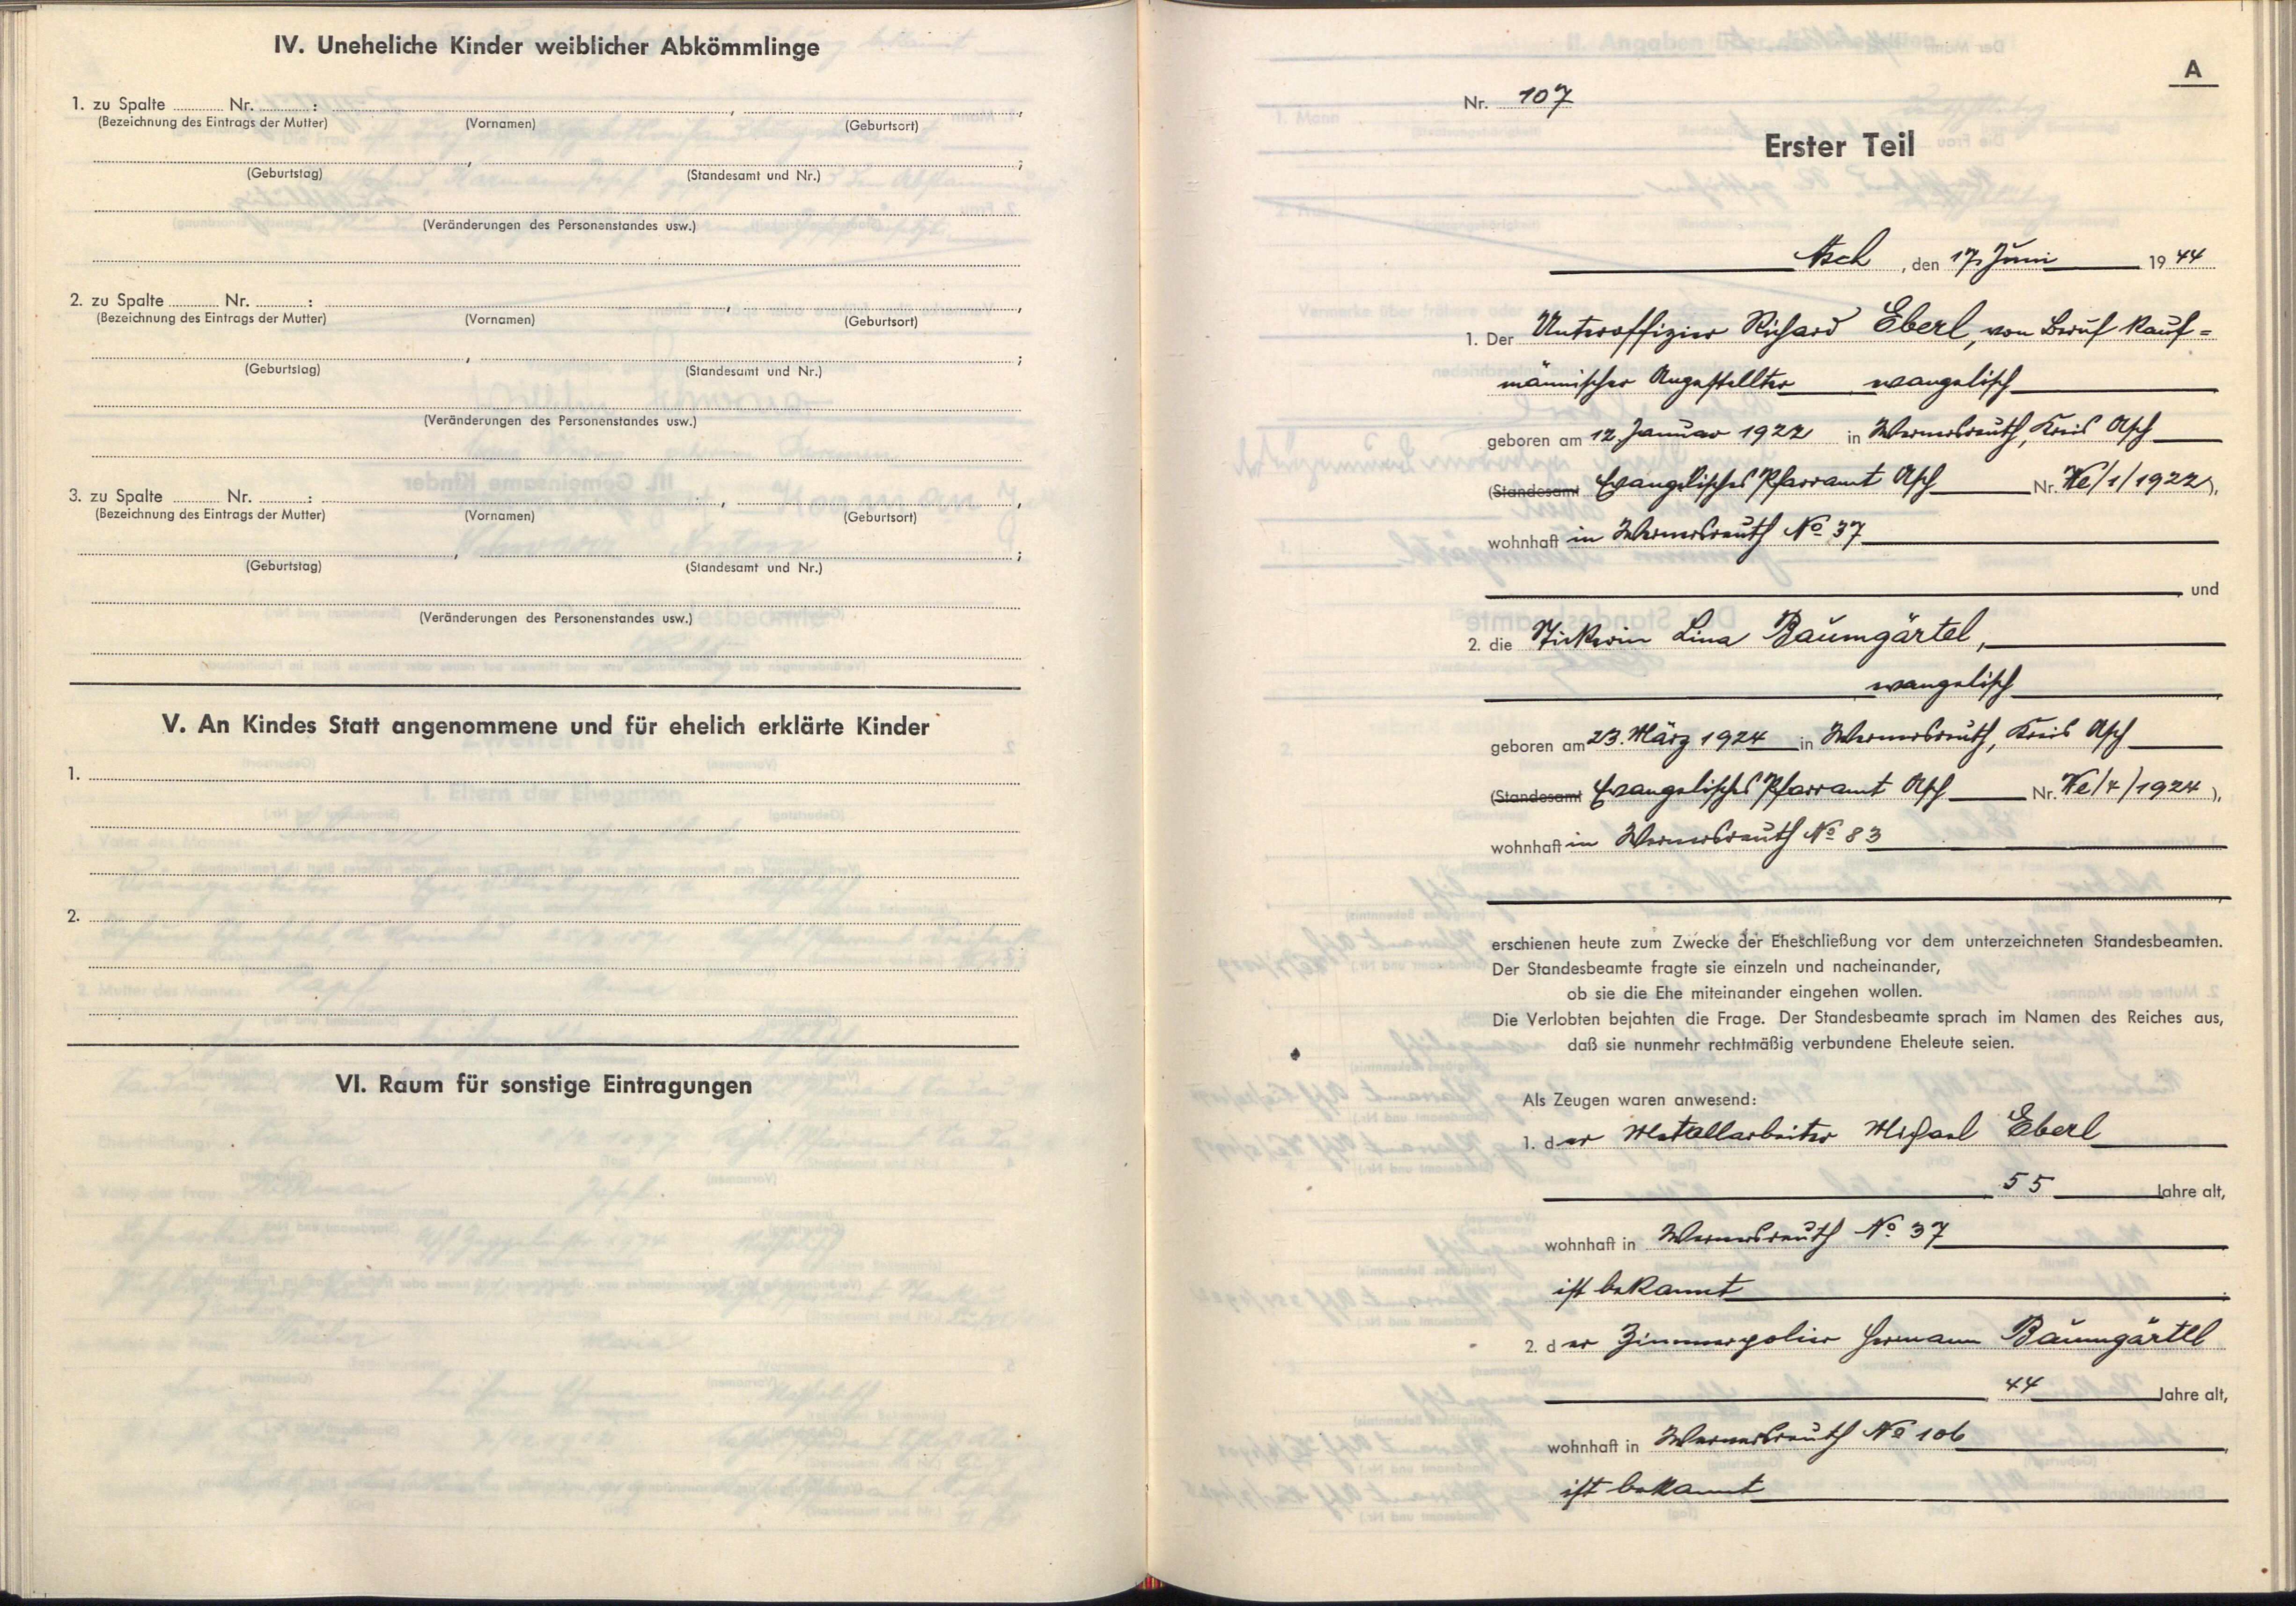 IV. Uneheliche Kinder weiblicher Abkömmlinge
1. zu Spalte Nr. : , ,
(Bezeichnung des Eintrags der Mutter) (Vornamen) (Geburtsort)
, ;
(Geburtstag) (Standesamt und Nr.)
(Veränderungen des Personenstandes usw.)
2. zu Spalte Nr. : , ,
(Bezeichnung des Eintrags der Mutter) (Vornamen) (Geburtsort)
, ;
(Geburtstag) (Standesamt und Nr.)
(Veränderungen des Personenstandes usw.)
3. zu Spalte Nr. : , ,
(Bezeichnung des Eintrags der Mutter) (Vornamen) (Geburtsort)
, ;
(Geburtstag) (Standesamt und Nr.)
(Veränderungen des Personenstandes usw.)
V. An Kindes Statt angenommene und für ehelich erklärte Kinder
1.
2.
VI. Raum für sonstige Eintragungen
A
Nr. 107
Erster Teil
Asch, den 17. Juni 1944
1. Der Unteroffizier Richard Eberl, von Beruf kauf=
männischer Angestellter evangelisch
geboren am 12. Januar 1922 in Wernersreuth, Kreis Asch
(Standesamt Evangelisches Pfarramt Asch Nr. We/1/1922),
wohnhaft in Wernersreuth No 37
und
2. die Lina Baumgärtel,
evangelisch
geboren am 23. März 1924 in Wernersreuth, Kreis Asch
(Standesamt Evangelisches Pfarramt Asch Nr. We/4/1924),
wohnhaft in Wernersreuth No 83
erschienen heute zum Zwecke der Eheschließung vor dem unterzeichneten Standesbeamten.
Der Standesbeamte fragte sie einzeln und nacheinander,
ob sie die Ehe miteinander eingehen wollen.
Die Verlobten bejahten die Frage. Der Standesbeamte sprach im Namen des Reiches aus,
daß sie nunmehr rechtmäßig verbundene Eheleute seien.
Als Zeugen waren anwesend:
1. der Metallarbeiter Michael Eberl
55 Jahre alt,
wohnhaft in Wernersreuth No 37
ist bekannt
2. der Zimmerpolier Hermann Baumgärtel
44 Jahre alt,
wohnhaft in Wernersreuth No 106
ist bekannt